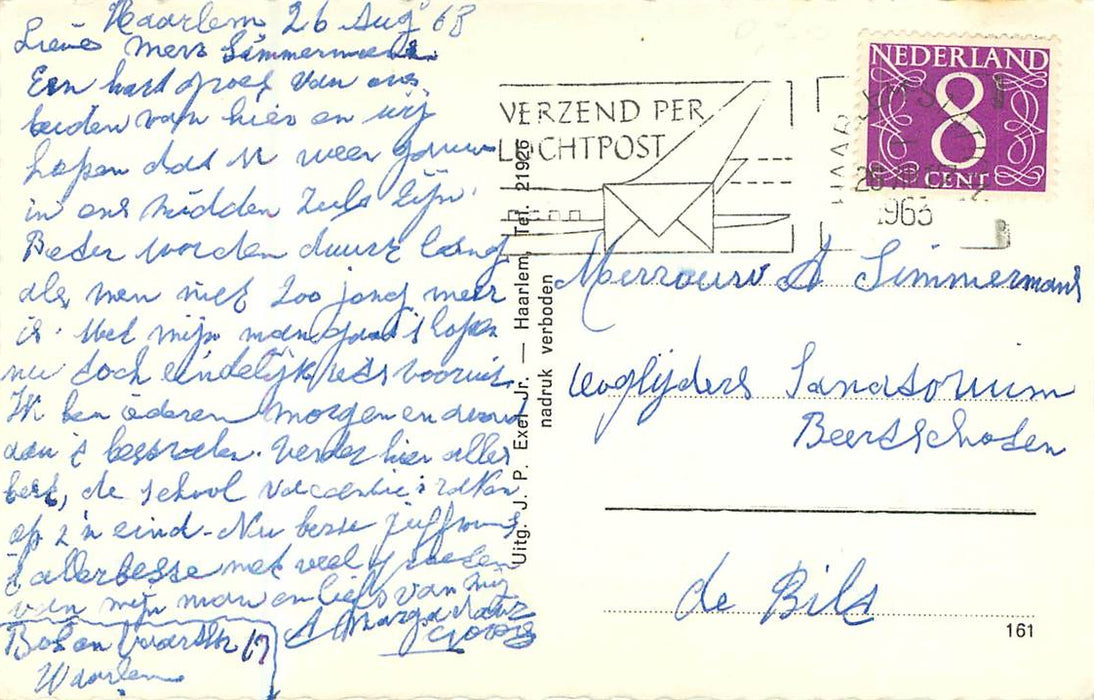 Haarlem 26 Aug 63
Lieve Mevr Simmermans.
Een hart groet van ons
beiden van hier en wij
hopen dat U weer gauw
in ons midden zult zijn
Beter worden duurt lang
als men niet zoo jong meer
is. Met mijn man gaat 't hopen
nu toch eindelijk iets vooruit.
Ik ben iederen morgen en avond
aan 't
Verder hier alles
best, de school vacantie is
op z'n eind. Nu beste juffrouw
't allerbeste met veel groeten
van mijn man en liefs van mij
A
Haarlem
Uitg. J. P. Exel Jr. — Haarlem, Tel. 21926
nadruk verboden
VERZEND PER
LUCHTPOST
HAARLEM
1963
NEDERLAND
8
CENT
Merrouw A Simmermans
Sanatorium
de Bilt
161